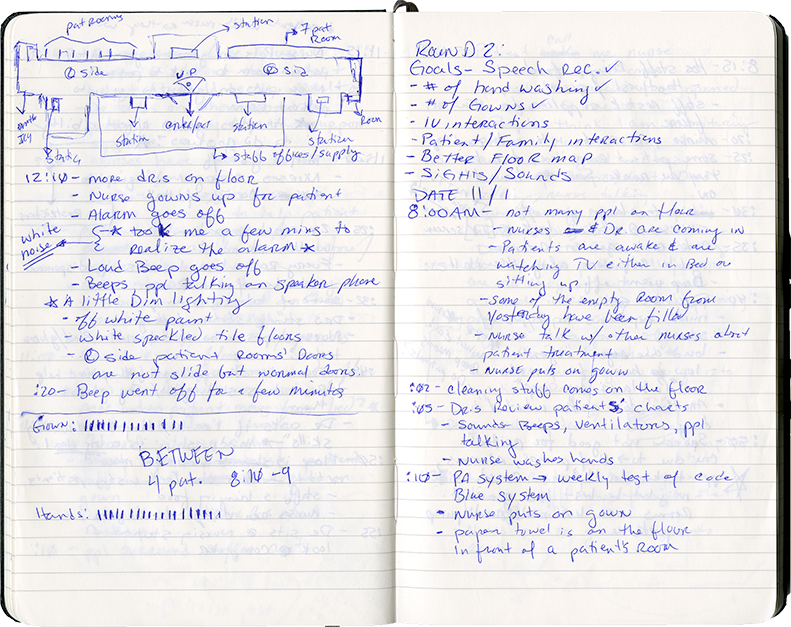 pat rooms
station
7 pat
Room
L side
UP
R sid
station
station
station
Room
staff offices/supply
12:10 - more dr.s on floor
- Nurse gowns up for patient
- Alarm goes off
white
noise
* took me a few mins to
realize the alarm *
- Loud Beep goes off
- Beeps, ppl talking on speaker phone
* A little Dim lighting
- off white paint
- white speckled tile floors
- L side patient Rooms' Doors
are not slide but normal doors.
:20 - Beep went off for a few minutes
Gown:
BETWEEN
4 pat. 8:10 - 9
Hands:
Round 2:
Goals - Speech rec. ✓
- # of hand washing ✓
- # of Gowns ✓
- IV interactions
- Patient/Family interactions
- Better Floor map
- Sights/Sounds
DATE 11/1
8:00AM - not many ppl on floor
- Nurses & Dr. are coming in
- Patients are awake & are
watching TV either in Bed or
sitting up
- Some of the empty Room from
Yesterday have been filled
- Nurse talk w/ other nurses about
patient treatment
- Nurse puts on gown
:02 - cleaning staff comes on the floor
:05 - Dr.s Review patients' charts
- Sounds - Beeps, Ventilatures, ppl
talking
- Nurse washes hands
:10 - PA System → weekly test of code
Blue system
• Nurse puts on gown
• paper towel is on the floor
In front of a patient's Room